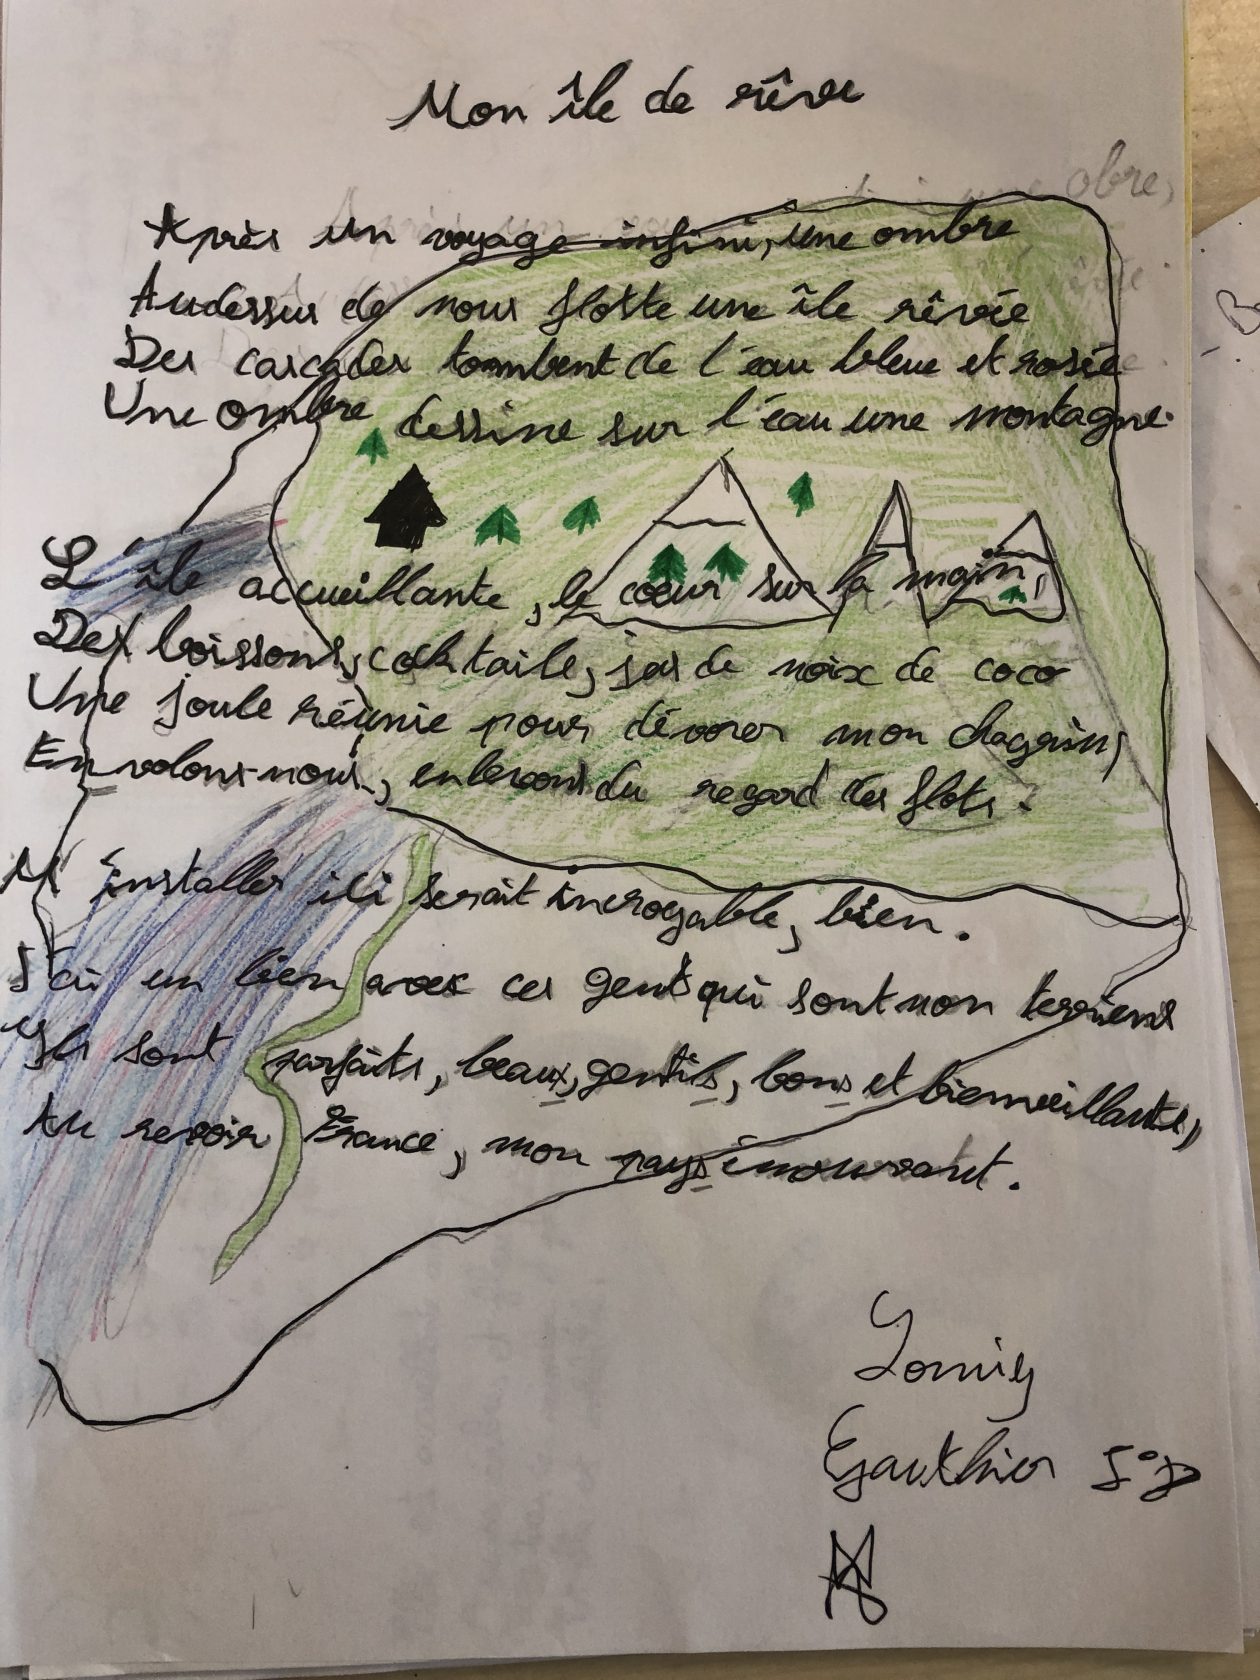 Mon île de rêve
obre,
Après un voyage infini, une ombre
Audessus de nous flotte une île rêvée
Des cascades tombent de l'eau bleue et rosée
Une ombre dessine sur l'eau une montagne.
L'île accueillante, le coeur sur la main,
Des boissons, cocktails, jus de noix de coco
Une foule réunie pour dévorer mon chagrin,
Envolons-nous, enlevons du regard les flots.
M'installer ici serait incroyable, bien.
J'ai un lien avec ces gents qui sont non terriens
Ils sont parfaits, beaux, gentils, bons et bienveillants,
Au revoir France, mon pays mourant.
Gauthier 5°